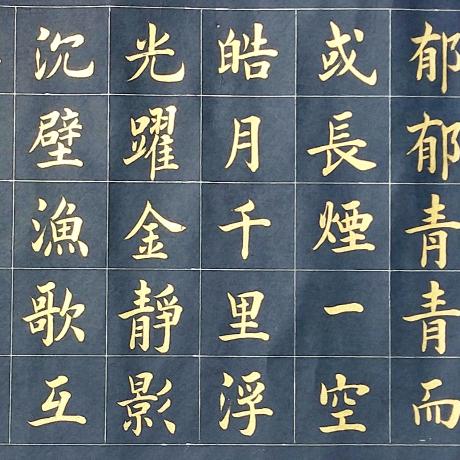 郁郁青青而
或長煙一空
皓月千里浮
光躍金靜影
沉壁漁歌互